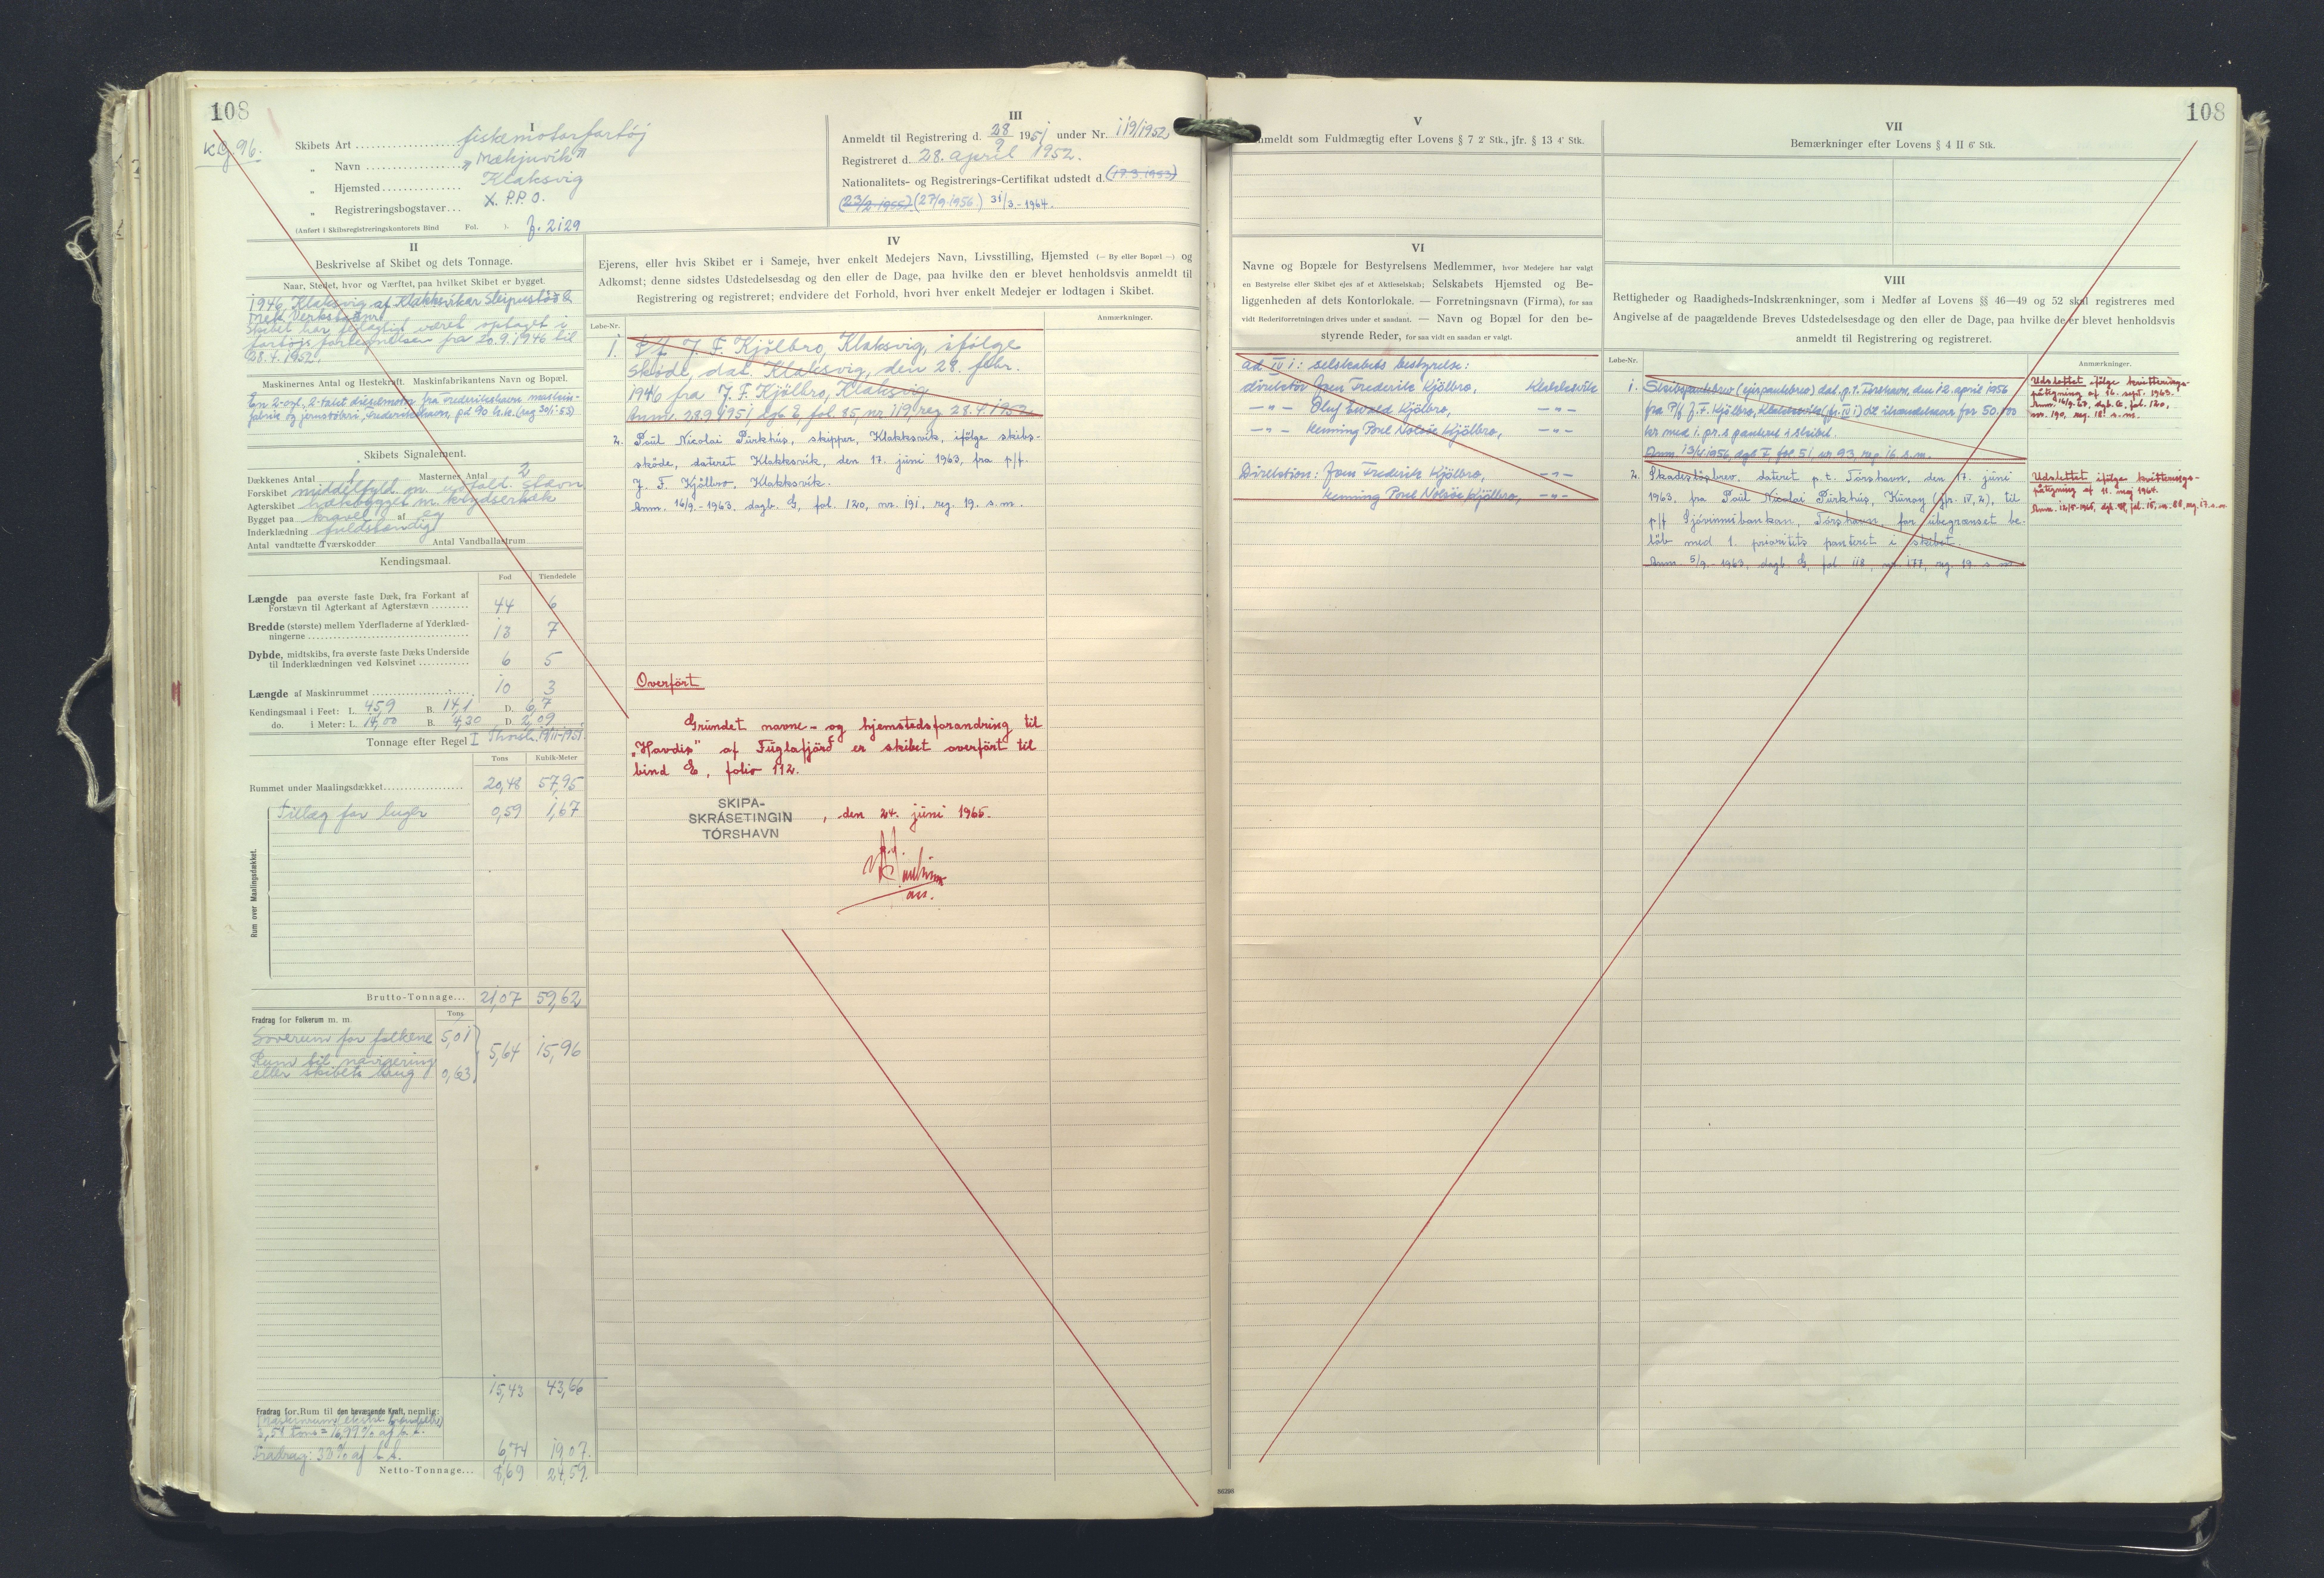 108
KG 96.
I
Skibets Art fiskemotorfartøj
„ Navn
„ Hjemsted Klaksvig
„ Registreringsbogstaver X.P.P.O.
(Anført i Skibsregistreringskontorets Bind Fol. ).
III
Anmeldt til Registrering d. 28/9 1951 under Nr. 119/1952
Registreret d. 28. april 1952.
Nationalitets- og Registrerings-Certifikat udstedt d. (17.3.1953)
(23/2 1955) (27/9-1956.) 31/3.-1964.
II
Beskrivelse af Skibet og dets Tonnage.
Naar, Stedet, hvor og Værftet, paa hvilket Skibet er bygget.
1946 Klaksvig af Klakksvíkar Sleipistöð &
Mek. Verkstaður
Skibet har fejlagtigt været optaget i
fartøjsfortegnelsen fra 20.9.1946 til
28.4.1952.
Maskinernes Antal og Hestekraft. Maskinfabrikantens Navn og Bopæl.
En 2-cyl., 2-takt dieselmotor fra Frederikshavns maskin-
fabrik og jernstøberi, Frederikshavn, på 90 h.k.
Skibets Signalement.
Dækkenes Antal 1 Masternes Antal 2
Forskibet middelfyld. m. udfald. stævn
Agterskibet hækbygget m. krydserhæk
Bygget paa kravel af eg
Inderklædning fuldstændig
Antal vandtætte Tværskodder Antal Vandballastrum
Kendingsmaal.
Fod Tiendedele
Længde paa øverste faste Dæk, fra Forkant af
Forstævn til Agterkant af Agterstævn 44 6
Bredde (største) mellem Yderfladerne af Yderklæd-
ningerne 13 7
Dybde, midtskibs, fra øverste faste Dæks Underside
til Inderklædningen ved Kølsvinet 6 5
Længde af Maskinrummet 10 3
Kendingsmaal i Feet: L. 45,9 B. 14,1 D. 6,7
do. i Meter: L. 14,00 B. 4,30 D. 2,09
Tonnage efter Regel I
Tons Kubik-Meter
Rummet under Maalingsdækket 20,48 57,95
Rum over Maalingsdækket.
Tillæg for luger 0,59 1,67
Brutto-Tonnage... 21,07 59,62
Fradrag for Folkerum m. m. Tons
Soverum for folkene 5,01
5,64 15,96
Rum til navigering
eller skibets brug 0,63
15,43 43,66
Fradrag for Rum til den bevægende Kraft, nemlig:
Fradrag: 32% af b.t. 6,74 19,07.
Netto-Tonnage... 8,69 24,59.
IV
Ejerens, eller hvis Skibet er i Sameje, hver enkelt Medejers Navn, Livsstilling, Hjemsted (— By eller Bopæl —) og
Adkomst; denne sidstes Udstedelsesdag og den eller de Dage, paa hvilke den er blevet henholdsvis anmeldt til
Registrering og registreret; endvidere det Forhold, hvori hver enkelt Medejer er lodtagen i Skibet.
Løbe-Nr. Anmærkninger.
1. P/f J. F. Kjölbro, Klaksvig, ifølge
skøde, dat. Klaksvig, den 28. febr.
1946 fra J. F. Kjölbro, Klaksvig
Anm. 28.9.1951, dgb. E, fol. 85, nr. 119, reg. 28.4.1952.
2. Poul Nicolai Púrkhús, skipper, Klakksvík, ifölge skibs-
sköde, dateret Klakksvík, den 17. júni 1963, fra p/f.
J. F. Kjölbro, Klakksvík.
Anm. 16/9.-1963, dagb. G, fol. 120, nr. 191, reg. 19. s. m.
Overfört
Grundet navne- og hjemstedsforandring til
„Havdis" af Fuglafjörð er skibet overfört til
bind E, folio 112.
SKIPA-
SKRÁSETINGIN
TÓRSHAVN
, den 24. júni 1965.
ass.
108
V
Anmeldt som Fuldmægtig efter Lovens § 7 2' Stk., jfr. § 13 4' Stk.
VI
Navne og Bopæle for Bestyrelsens Medlemmer, hvor Medejere har valgt
en Bestyrelse eller Skibet ejes af et Aktieselskab; Selskabets Hjemsted og Be-
liggenheden af dets Kontorlokale. — Forretningsnavn (Firma), for saa
vidt Rederiforretningen drives under et saadant. — Navn og Bopæl for den be-
styrende Reder, for saa vidt en saadan er valgt.
ad IV 1: selskabets bestyrelse:
direktör Joen Frederik Kjölbro, Klakksvík
— " — Oluf Ewald Kjölbro, — " —
— " — Henning Poul Nolsöe Kjölbro, — " —
Direktion: Joen Frederik Kjölbro, — " —
Henning Poul Nolsöe Kjölbro, — " —
VII
Bemærkninger efter Lovens § 4 II 6' Stk.
VIII
Rettigheder og Raadigheds-Indskrænkninger, som i Medfør af Lovens §§ 46—49 og 52 skal registreres med
Angivelse af de paagældende Breves Udstedelsesdage og den eller de Dage, paa hvilke de er blevet henholdsvis
anmeldt til Registrering og registreret.
Løbe-Nr. Anmærkninger.
1. Skibspantebrev (ejerpantebrev) dat. p.t. Tórshavn, den 12. april 1956
fra P/f J. F. Kjölbro, Klakksvík (jfr. IV 1) til ihændehaver for 50.000
kr med 1. pr.s panteret i skibet.
Anm. 13/4 1956, dgb F, fol. 51 nr 93, reg. 16. s.m.
Udslettet ifölge kvitterings-
påtegning af 16. sept. 1963.
Anm. 16/9-63, dagb. G, fol. 120,
nr. 190, reg. 18. s. m.
2. Skadeslösbrev, dateret p. t. Tórshavn, den 17. júni
1963, fra Poul Nicolai Púrkhús, Kunoy (jfr. IV, 2), til
p/f Sjóvinnubankan, Tórshavn, for ubegrænset be-
löb med 1. prioritets panteret i skibet.
Anm. 5/9.-1963, dagb. G, fol 118, nr. 177, reg. 19. s. m.
Udslettet ifölge kvitterings-
påtegning af 11. maj 1964.